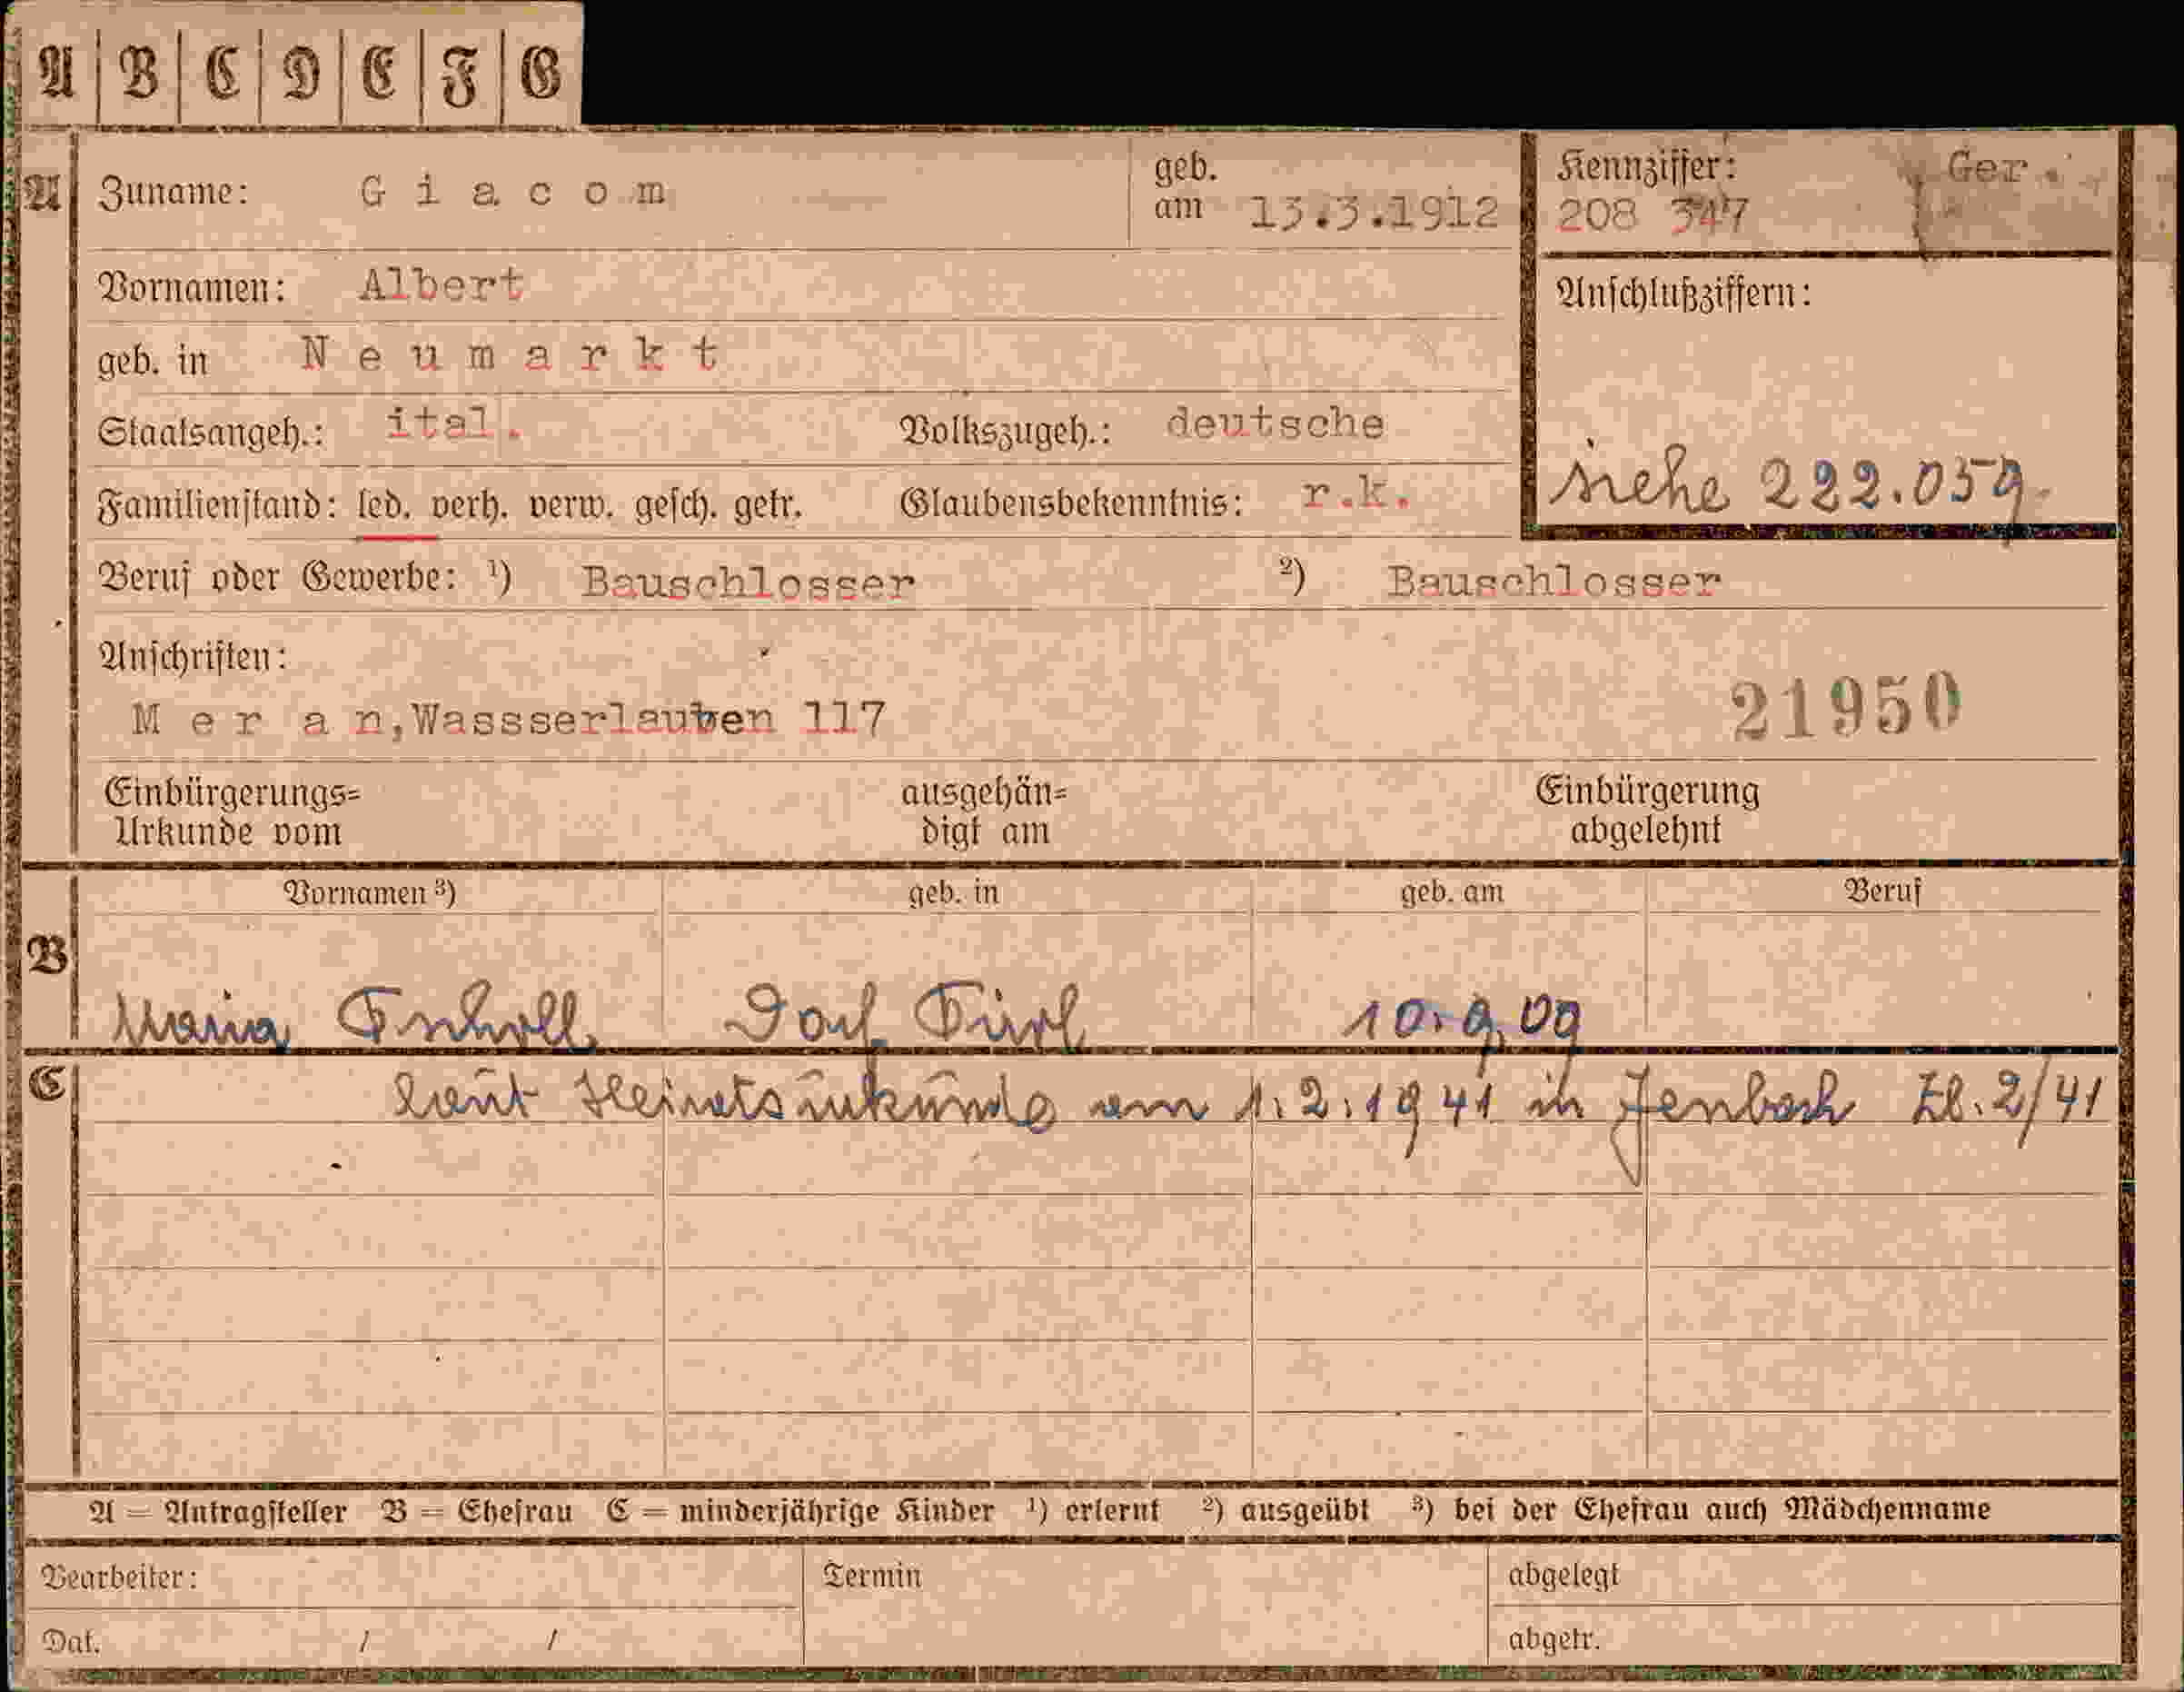 A B C D E F G
A Zuname: Giacom geb. am 13.3.1912 Kennziffer: 208 347 Ger.
Vornamen: Albert Anschlußziffern:
geb. in Neumarkt
Staatsangeh.: ital. Volkszugeh.: deutsche
siehe 222.059.
Familienstand: led. verh. verw. gesch. getr. Glaubensbekenntnis: r.k.
Beruf oder Gewerbe: ¹) Bauschlosser ²) Bauschlosser
Anschriften:
Meran,Wassserlauben 117 21950
Einbürgerungs= Urkunde vom ausgehän= digt am Einbürgerung abgelehnt
Vornamen ³) geb. in geb. am Beruf
B Maria Tscholl Dorf Tirol 10.9.09
C laut Heiratsurkunde am 1.2.1941 in Jenbach Zl. 2/41
A = Antragsteller B = Ehefrau C = minderjährige Kinder ¹) erlernt ²) ausgeübt ³) bei der Ehefrau auch Mädchenname
Bearbeiter: Termin abgelegt
Dat. / / abgetr.